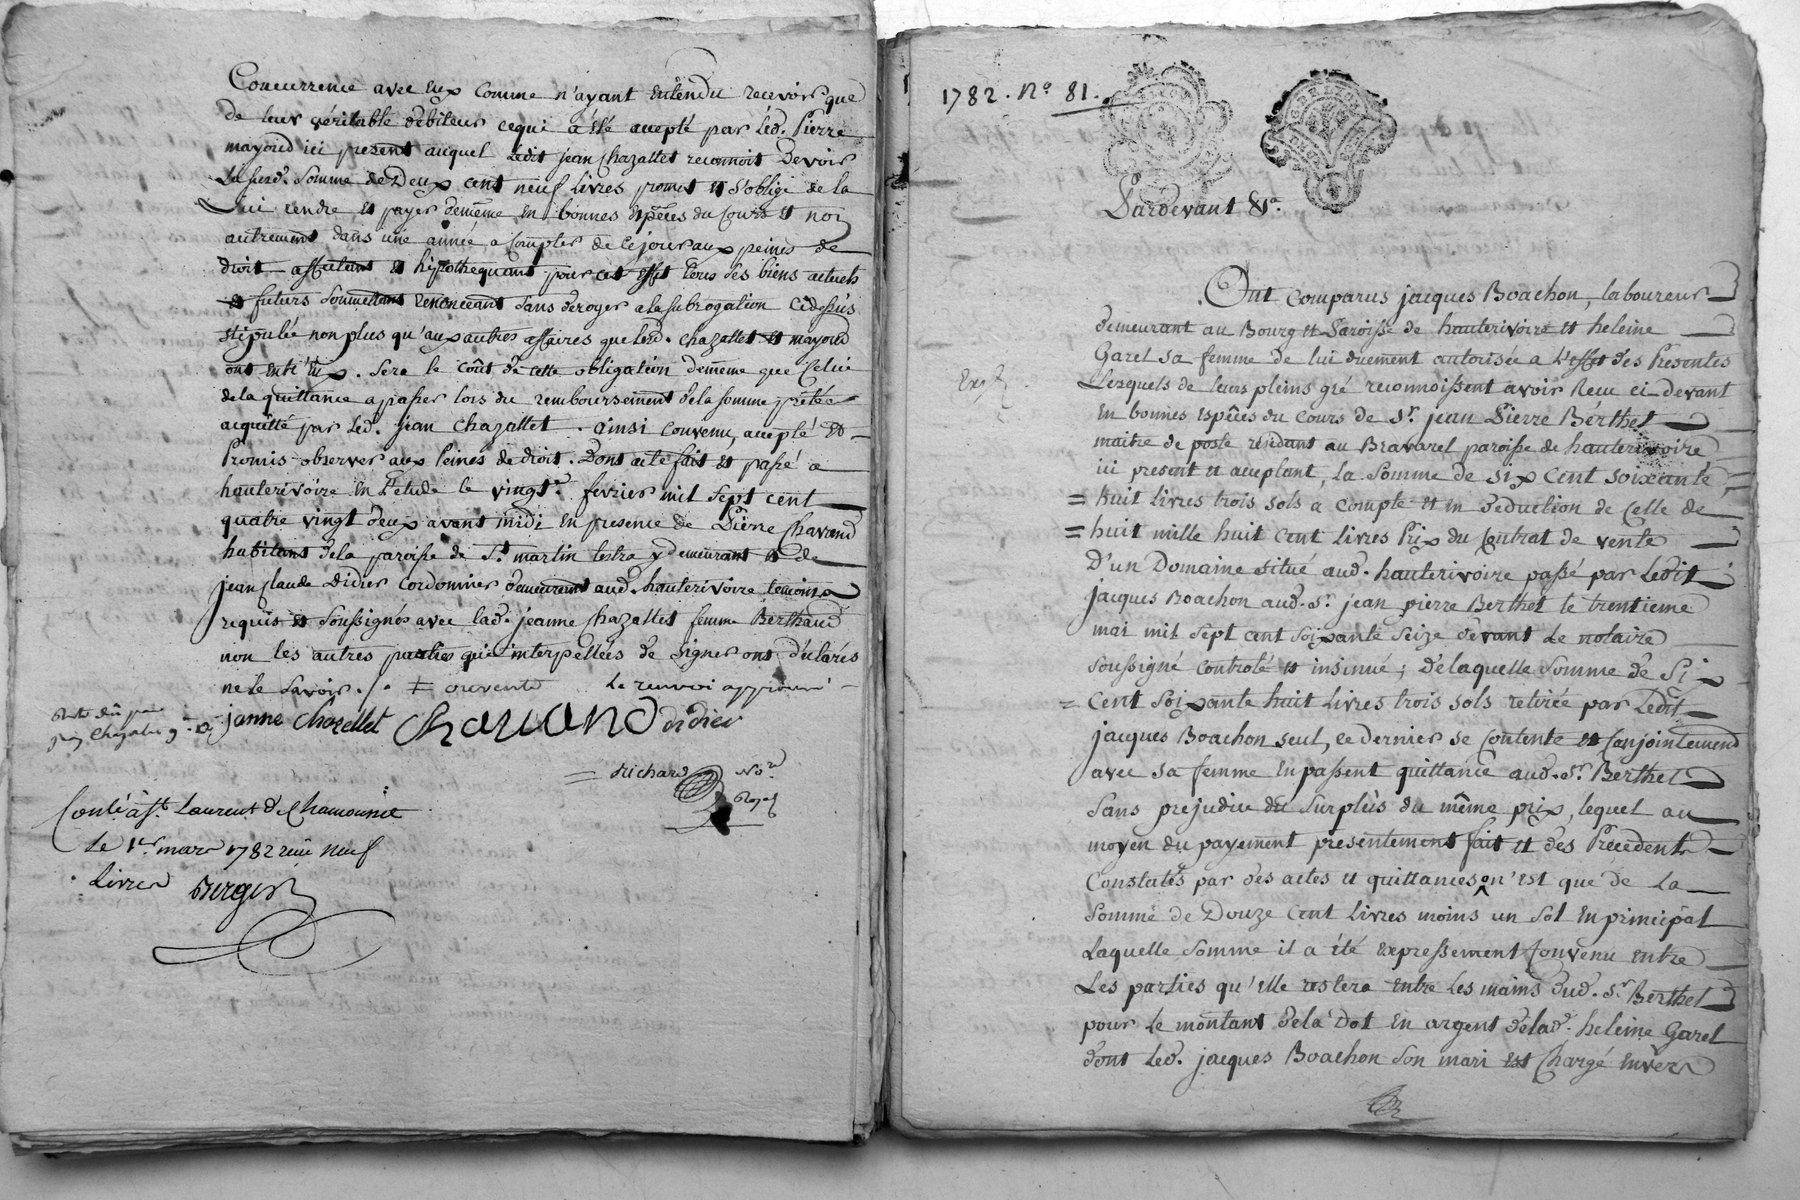 Concurrence avec eux comme n'ayant entendu recevoir que
de leur véritable débiteur cequi a été accepté par led. Pierre
mayoud ici present auquel ledit jean Chazallet reconnoit devoir
la susd. somme de Deux cent neuf livres promet et s'oblige de la
lui rendre et payer demême en bonnes espêces du cours et non
autrement dans une année a compter de ce jour aux peines de
droit affectant et hipothequant pour cet effet tous ses biens actuels
et futurs soumettant renonceant sans déroger a la subrogation cidessus
stipulée non plus qu'aux autres affaires que led. Chazallet et mayoud
ont entr'eux. Sera le coût de cette obligation demême que celui
de la quittance a passer lors du remboursement de la somme prêtée
acquitté par led. jean Chazallet. ainsi convenu, accepté et
Promis observer aux Peines de droit. Dont acte fait et passé a
hauterivoire en l'etude le vingt fevrier mil sept cent
quatre vingt deux avant midi en presence de Pierre Chavand
habitant dela paroisse de St. martin lestra y demeurant et de
jean Claude Didier Cordonnier demeurant aud. hauterivoire temoins
requis et soussignés avec lad. jeanne Chazallet femme Berthaud
non les autres parties qui interpellées de signer ont déclarés
ne le savoir ./. ≠ le renvoi approuvé
janne Chazellet Chavand didier
Richard No.re
Royal
Conlé à St. Laurent de Chamousset
Le 1er mars 1782 neuf
Livres Berger
1782. N° 81.
Pardevant &a.
Ont comparus jacques Boachon, laboureur
demeurant au Bourg et Paroisse de hauterivoire et heleine
Garel sa femme de lui duement autorisée a l'effet des Presentes
Lesquels de leurs pleins gré reconnoissent avoir Recu ci devant
en bonnes espêces du cours de Sr. jean Pierre Berthet
maitre de poste résidant au Bravarel paroisse de hauterivoire
ici present et acceptant, la somme de six cent soixante
= huit livres trois sols a compte et en deduction de celle de
= huit mille huit cent livres Prix du Contrat de vente
D'un Domaine situé aud. hauterivoire passé par Ledit
jacques Boachon aud. Sr. jean pierre Berthet le trentieme
mai mil sept cent soixante seize devant Le notaire
soussigné controlé et insinué; de laquelle somme de six
= cent soixante huit livres trois sols retirée par Ledit
jacques Boachon seul, ce dernier se contente et Conjointement
avec sa femme en passent quittance aud. Sr. Berthet
sans prejudice du surplus du même prix, lequel au
moyen du payement presentement fait et des Precedents
Constatés par des actes et quittances n'est que de La
somme de Douze cent livres moins un sol en principal
Laquelle somme il a été expressement Convenu entre
Les parties qu'elle restera entre les mains dud. Sr. Berthet
pour le montant de la dot en argent de lad. heleine Garel
dont led. jacques Boachon son mari est Chargé envers